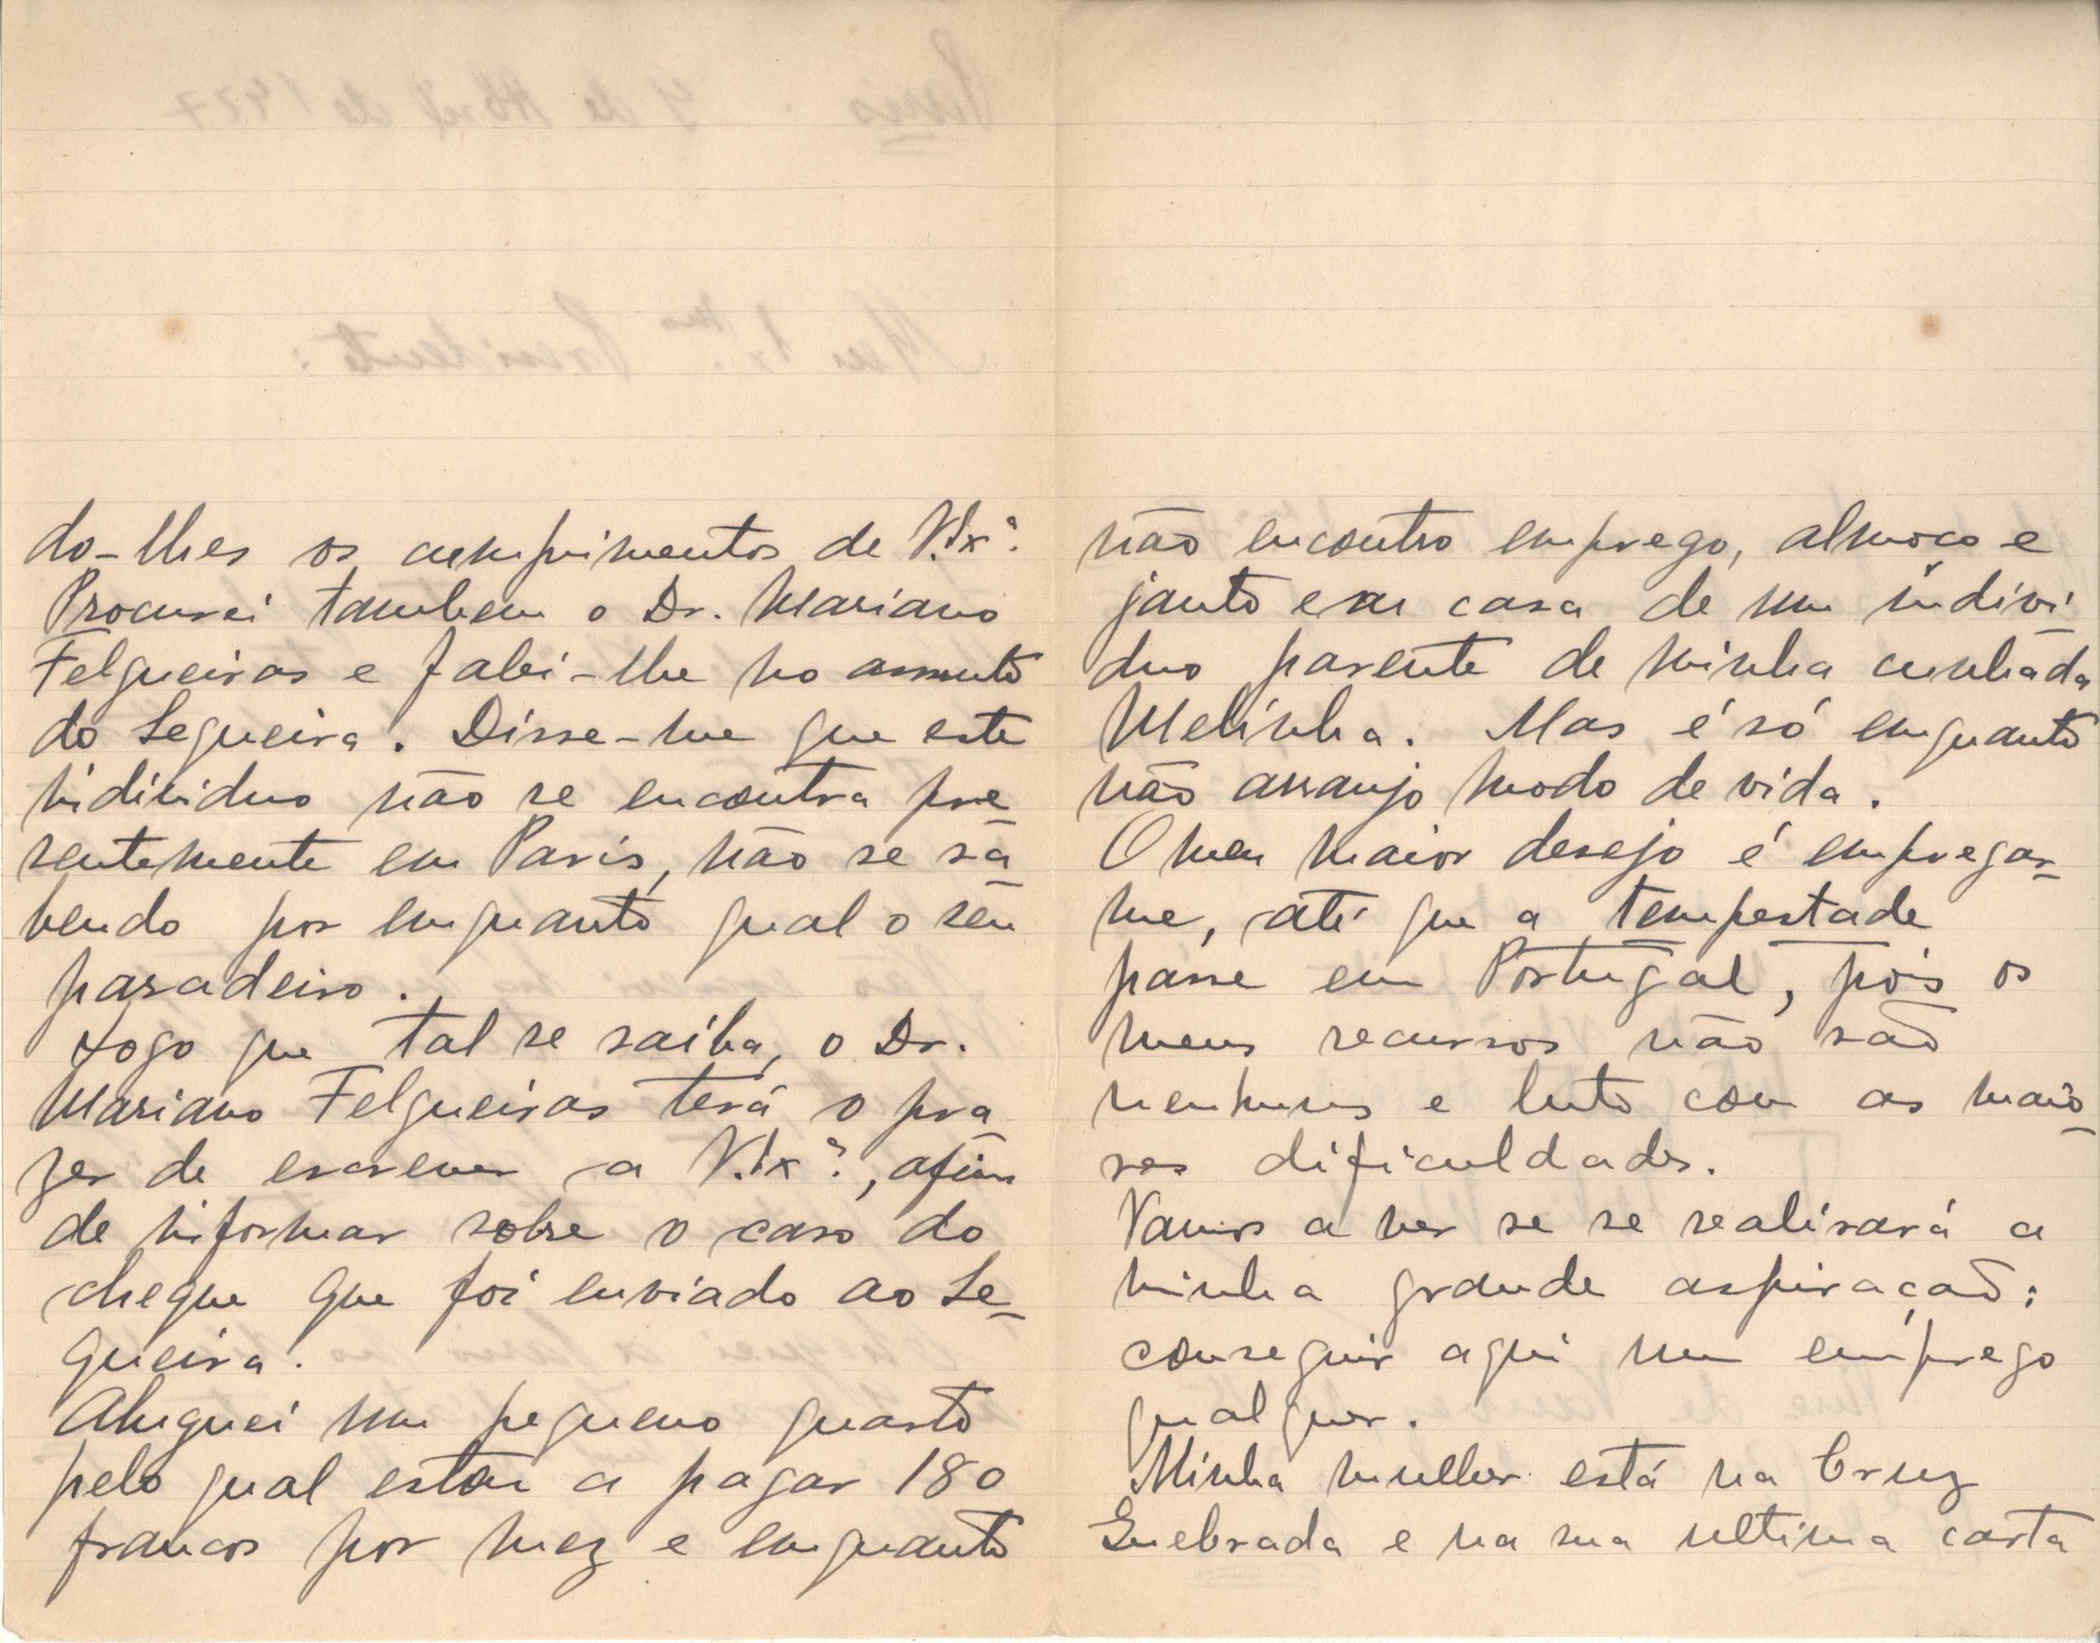 do-lhes os cumprimentos de V. Exª.
Procurei tambem o Dr. Mariano
Felgueiras e falei-lhe no assunto
do Segueira. Disse-me que este
individuo não se encontra pre-
sentemente em Paris, não se sa-
bendo por emquanto qual o seu
paradeiro.
Logo que tal se saiba, o Dr.
Mariano Felgueiras terá o pra-
zer de escrever a V. Exª., afim
de informar sobre o caso do
cheque que foi enviado ao Se-
gueira.
Aluguei um pequeno quarto
pelo qual estou a pagar 180
francos por mez e emquanto
não encontro emprego, almoço e
janto em casa de um indivi-
duo parente de minha cunhada
Melinha. Mas é só emquanto
não arranjo modo de vida.
O meu maior desejo é empregar-
me, até que a tempestade
passe em Portugal, pois os
meus recursos não são
nenhuns e luto com as maio-
res dificuldades.
Vamos a ver se se realisará a
minha grande aspiração:
conseguir aqui um emprego
qualquer.
Minha mulher está na Cruz
Quebrada e na sua ultima carta